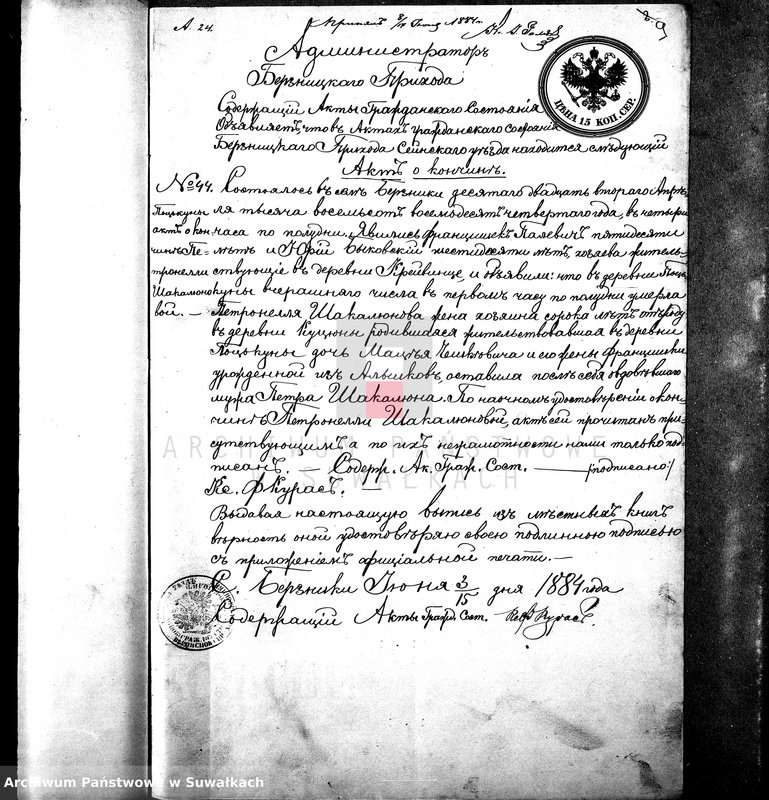 А. 24.
Принялъ 3/15 Іюня 1884 г.
Администраторъ
Берзницкаго Прихода
Содержащій Акты Гражданскаго Состоянія
Объявляетъ, что въ Актахъ гражданскаго состоянія
Берзницкаго Прихода Сейнскаго уѣзда находится слѣдующій
Актъ о кончинѣ.
ЦѢНА 15 КОП. СЕР.
№ 44. Состоялось въ селѣ Берзники десятаго двадцать втораго Апрѣ-
Поцкуны ля тысяча восемьсотъ восемьдесятъ четвертаго года, въ четыри
актъ о кон- часа по полудни. Явились Францишекъ Палевичъ пятидесяти
чинѣ Пе- лѣтъ и Юрій Быковскій шестидесяти лѣтъ, хозяева житель-
тронелли ствующіе въ деревни Крейвинце, и объявили: что въ деревни Поц-
Шакалюно- куны вчерашняго числа въ первомъ часу по полудни умерла
вой. — Петронелля Шакалюнова жена хозяина сорока лѣтъ отъ роду
въ деревни Куцюны родившаяся жительствовавшая въ деревни
Поцкуны дочь Мацѣя и его жены Францишки
урожденной изъ оставила послѣ себя овдовѣвшаго
мужа Петра Шакалюна. По наочномъ удостовѣреніи о кон-
чинѣ Петронелли Шакалюновой, актъ сей прочитанъ при-
сутствующимъ а по ихъ неграмотности нами только под-
писанъ. — Содерж. Ак. Граж. Сост. — /подписано:/
Кс. Ф Курасъ. —
Выдавая настоящую выпись изъ мѣстныхъ книгъ
вѣрность оной удостовѣряю своею подлинною подписью
съ приложеніемъ официальной печати. —
С. Берзники Іюня 3/15 дня 1884 года
Содержащій Акты Граж. Сост. Кс Ф Курасъ
ARCHIWUM PAŃSTWOWE
SUWAŁKACH
Archiwum Państwowe w Suwałkach